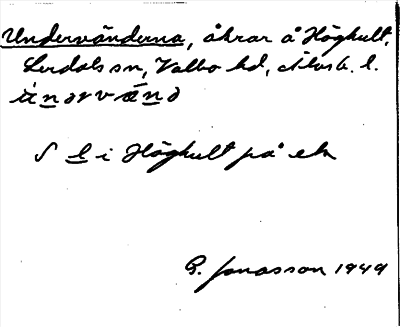 Undervänderna, åkrar å Höghult,
Lerdals sn, Valbo hd, Älvsb. l.
i Höghult på ek
G. Jonasson 1949